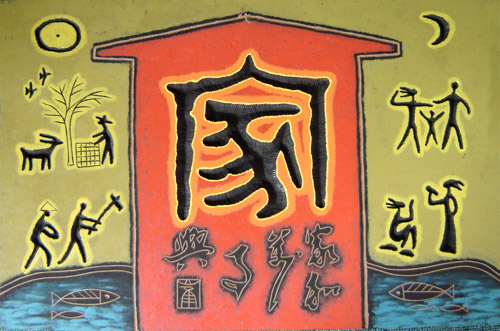 家
家和萬事興